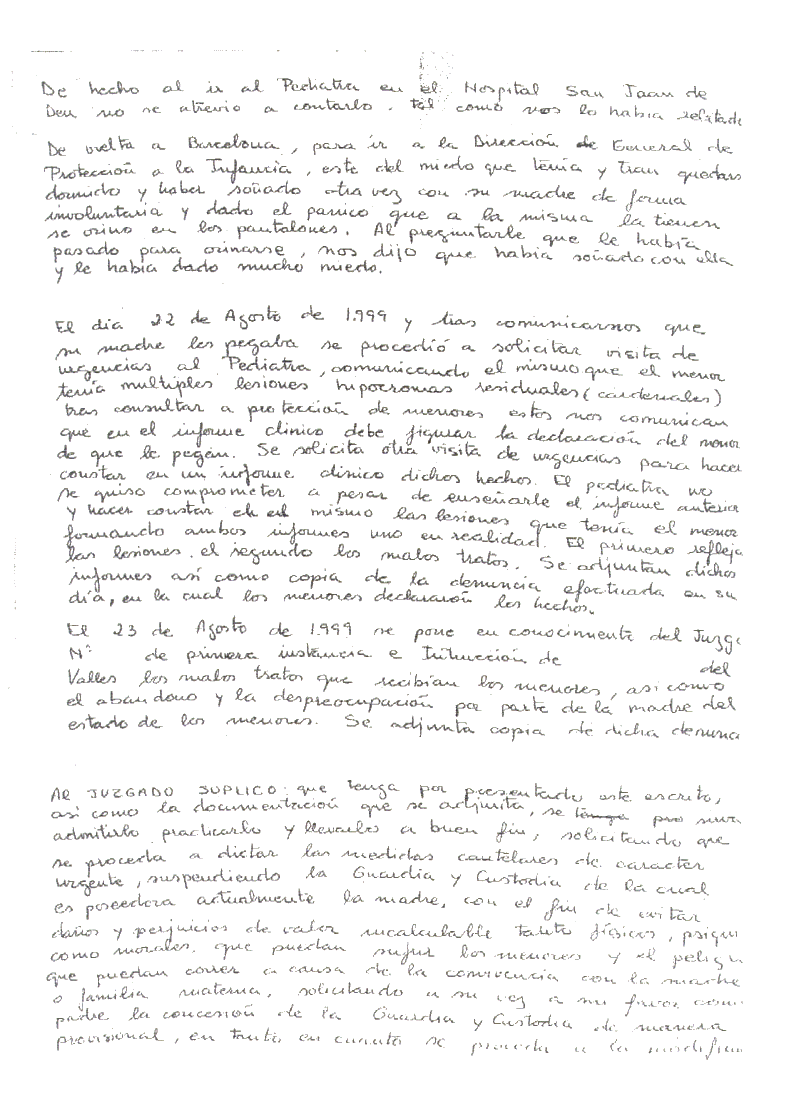 De hecho al ir al Pediatra en el Hospital San Joan de
Deu no se atrevio a contarlo, tal como nos lo habia relatado
De vuelta a Barcelona, para ir a la Dirección de General de
Protección a la Infancia, este del miedo que tenia y tran quedars
dormido y haber soñado otra vez con su madre de forma
involuntaria y dado el panico que a la misma la tienen
se orino en los pantalones. Al preguntarle que le había
pasado para orinarse, nos dijo que había soñado con ella
y le había dado mucho miedo.
El dia 22 de Agosto de 1.999 y tras comunicarnos que
su madre les pegaba se procedió a solicitar visita de
urgencias al Pediatra, comunicando el mismo que el menor
tenía multiples lesiones hipocromas residuales (cardenales)
tras consultar a protección de menores estos nos comunican
que en el informe clinico debe figurar la declaración del menor
de que le pegan. Se solicita otra visita de urgencias para hacer
constar en un informe clinico dichos hechos. El pediatra no
se quiso comprometer a pesar de enseñarle el informe anterior
y hacer constar en el mismo las lesiones que tenía el menor
formando ambos informes uno en realidad. El primero refleja
las lesiones, el segundo los malos tratos. Se adjuntan dichos
informes así como copia de la denuncia efectuada en su
día, en la cual los menores declararon los hechos.
El 23 de Agosto de 1.999 se pone en conocimiento del Juzg
Nº de primera instancia e Intrucción de del
Valles los malos tratos que recibian los menores, asi como
el abandono y la despreocupación por parte de la madre del
estado de los menores. Se adjunta copia de dicha denuna
Al JUZGADO SUPLICO: que tenga por presentado este escrito,
así como la documentación que se adjunta, se tenga pro
admitirlo practicarlo y llevarlo a buen fin, solicitando que
se proceda a dictar las medidas cautelares de caracter
urgente, suspendiendo la Guardia y Custodia de la cual
es poseedora actualmente la madre, con el fin de evitar
daños y perjuicios de valor incalculable tanto físicos, psiqui
como morales, que puedan sufrir los menores y el peligr
que puedan correr a causa de la convivencia con la madre
o familia materna, solicitando a su vez a mi favor como
padre la concesión de la Guardia y Custodia de manera
provisional, en tanto en cuanto se proceda a la modifica